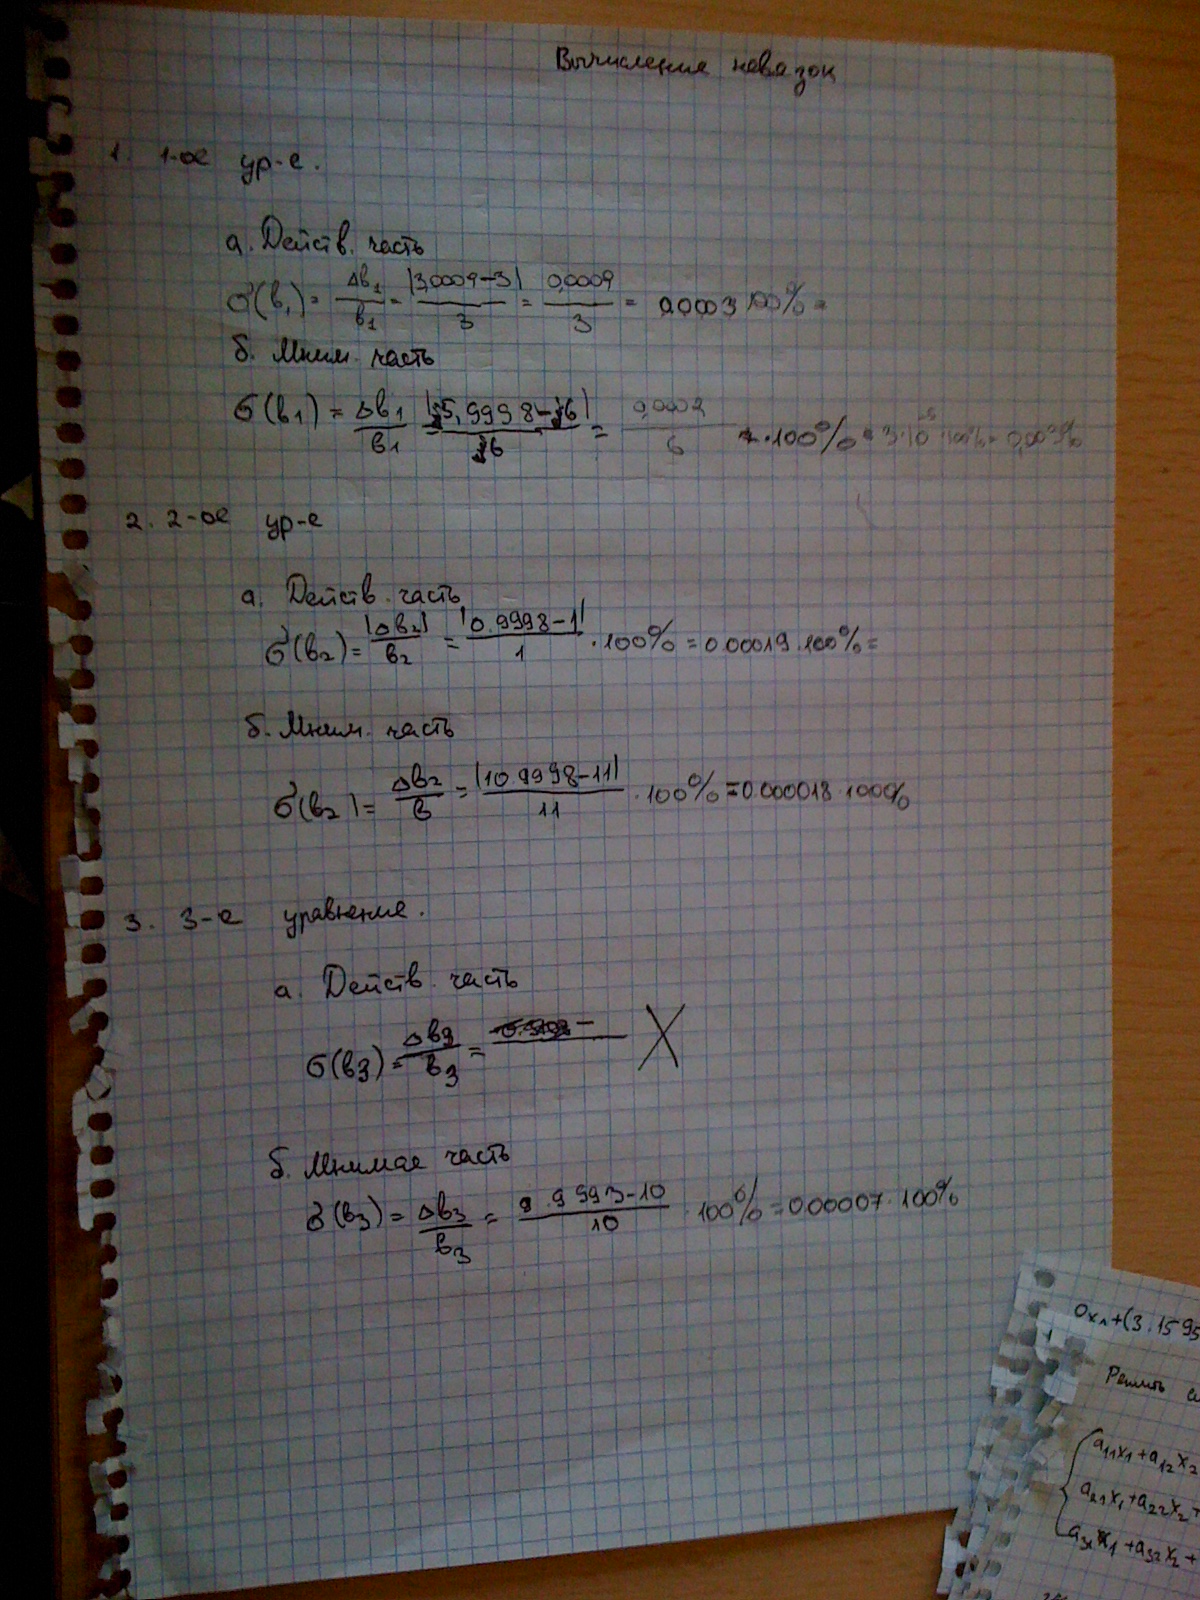 Вычисление невязок
1. 1-ое ур-е.
а. Действ. часть
σ(в₁) = Δв₁/в₁ = |3,0009-3|/3 = 0,0009/3 = 0,0003 100% =
б. Мним. часть
σ(в1) = Δв1/в1 = |j5,9998-j6|/j6 = 0,0002/6 · 100% = 3·10⁻⁵·100% = 0,003%
2. 2-ое ур-е
а. Действ. часть
σ(в₂) = |Δв₂|/в₂ = |0.9998-1|/1 · 100% = 0.00019·100% =
б. Мним. часть
σ(в₂) = Δв₂/в = |10.9998-11|/11 · 100% = 0.000018·100%
3. 3-е уравнение.
а. Действ. часть
σ(в3) = Δв3/в3 =
б. Мнимае часть
σ(в3) = Δв3/в3 = 9.9993-10/10 · 100% = 0.00007·100%
0x₁+(3.1595
Решить
a₁₁x₁+a₁₂x₂
a₂₁x₁+a₂₂x₂+
a₃₁x₁+a₃₂x₂+